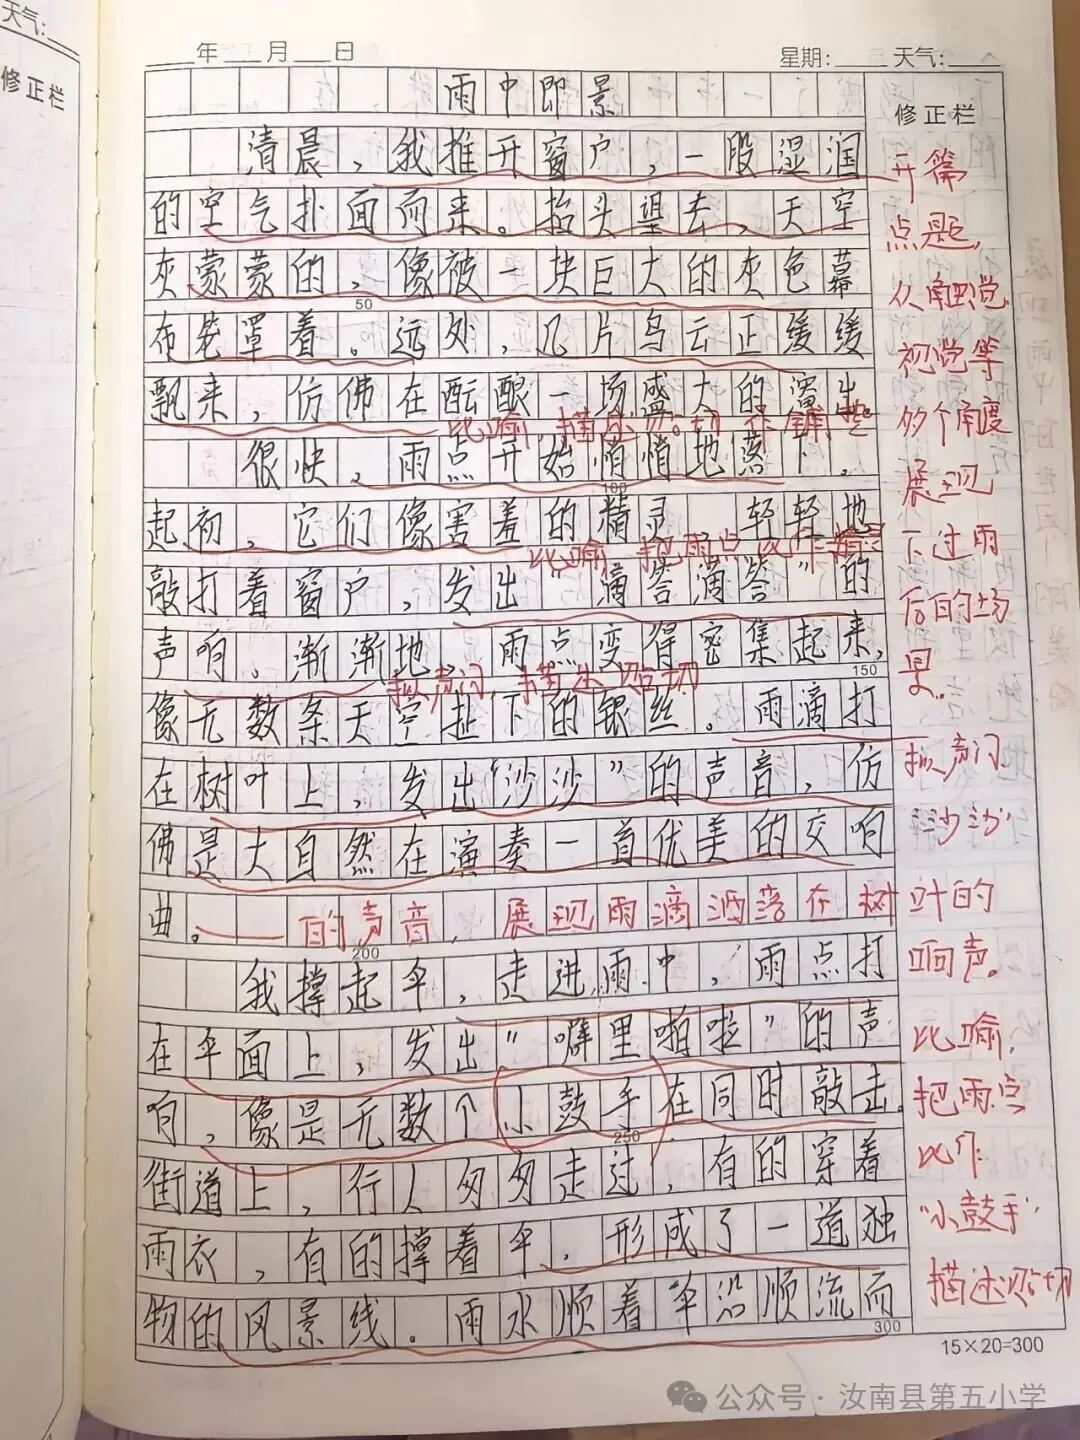 天气:
修正栏
年 月 日
星期: 天气:
雨中即景
修正栏
清晨，我推开窗户，一股湿润
的空气扑面而来。抬头望去，天空
灰蒙蒙的，像被一块巨大的灰色幕
50
布笼罩着。远处，几片乌云正缓缓
飘来，仿佛在酝酿一场盛大的演出
比喻，描
很快，雨点开始悄悄地落下，
100
起初，它们像害羞的精灵 轻轻地
比喻 把雨点比作精灵
敲打着窗户，发出"滴答滴答"的
声响。渐渐地，雨点变得密集起来，
150
拟声词，描述贴切
像无数条天空扯下的银丝。雨滴打
在树叶上，发出"沙沙"的声音，仿
佛是大自然在演奏一首优美的交响
曲。
的声音，展现雨滴洒落在树
200
我撑起伞，走进雨中，雨点打
在伞面上，发出"噼里啪啦"的声
响，像是无数个小鼓手在同时敲击。
250
街道上，行人匆匆走过，有的穿着
雨衣，有的撑着伞，形成了一道独
物的风景线。雨水顺着伞沿顺流而
300
15×20=300
开篇
点题，
从触觉
视觉等
多个角度
展现
下过雨
后的场
景。
拟声词
"沙沙"
叶的
响声。
比喻，
把雨点
比作
"小鼓手"
描述贴切
公众号·汝南县第五小学